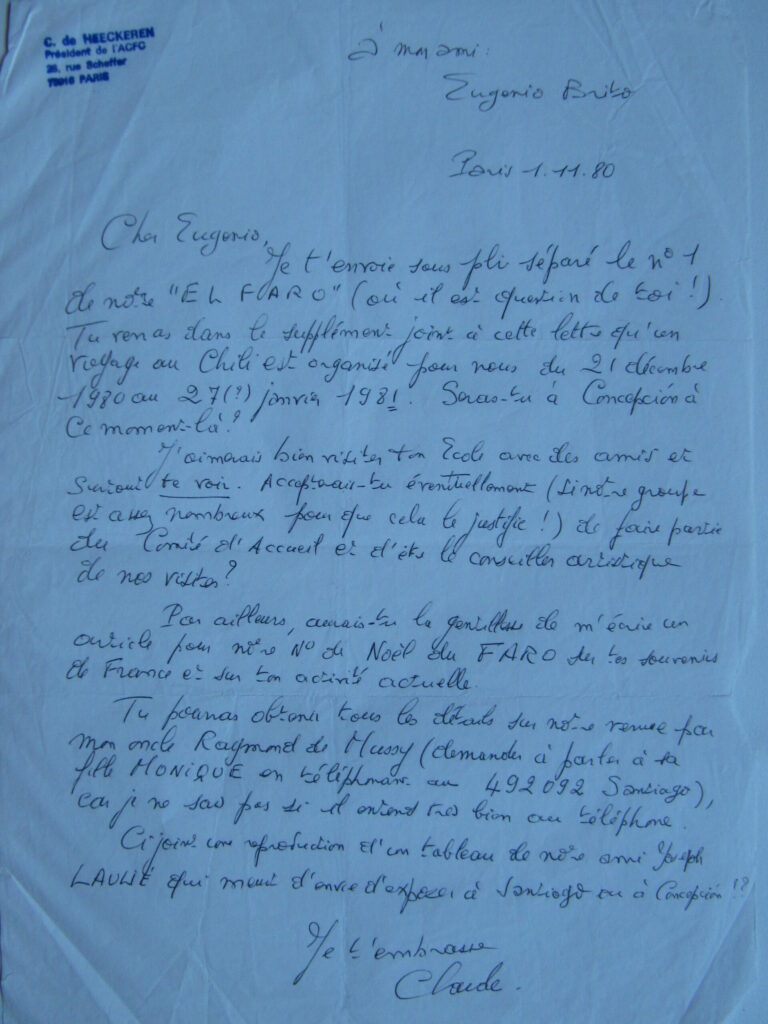 C. de HEECKEREN
Président de l'ACFC
26, rue Scheffer
75016 PARIS
à mon ami :
Eugenio Brito
Paris 1.11.80
Cher Eugenio,
Je t'envoie sous pli séparé le n° 1
de notre "EL FARO" (où il est question de toi !).
Tu verras dans le supplément joint à cette lettre qu'un
voyage au Chili est organisé pour nous du 21 décembre
1980 au 27(?) janvier 1981. Seras-tu à Concepción à
ce moment-là ?
J'aimerais bien visiter ton Ecole avec des amis et
surtout te voir. Accepterais-tu éventuellement (si notre groupe
est assez nombreux pour que cela le justifie !) de faire partie
du Comité d'Accueil et d'être le conseiller artistique
de nos visites ?
Par ailleurs, aurais-tu la gentillesse de m'écrire un
article pour notre N° de Noël du FARO sur tes souvenirs
de France et sur ton activité actuelle.
Tu pourras obtenir tous les détails sur notre venue par
mon oncle Raymond de Mussy (demander à parler à sa
fille MONIQUE en téléphonant au 492092 Santiago),
car je ne sais pas si il entend très bien au téléphone.
Ci joint une reproduction d'un tableau de notre ami Joseph
qui meurt d'envie d'exposer à Santiago ou à Concepción !?
Je t'embrasse
Claude.